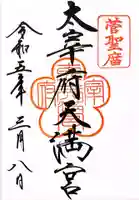 菅聖廟
太宰府天満宮
令和五年三月八日